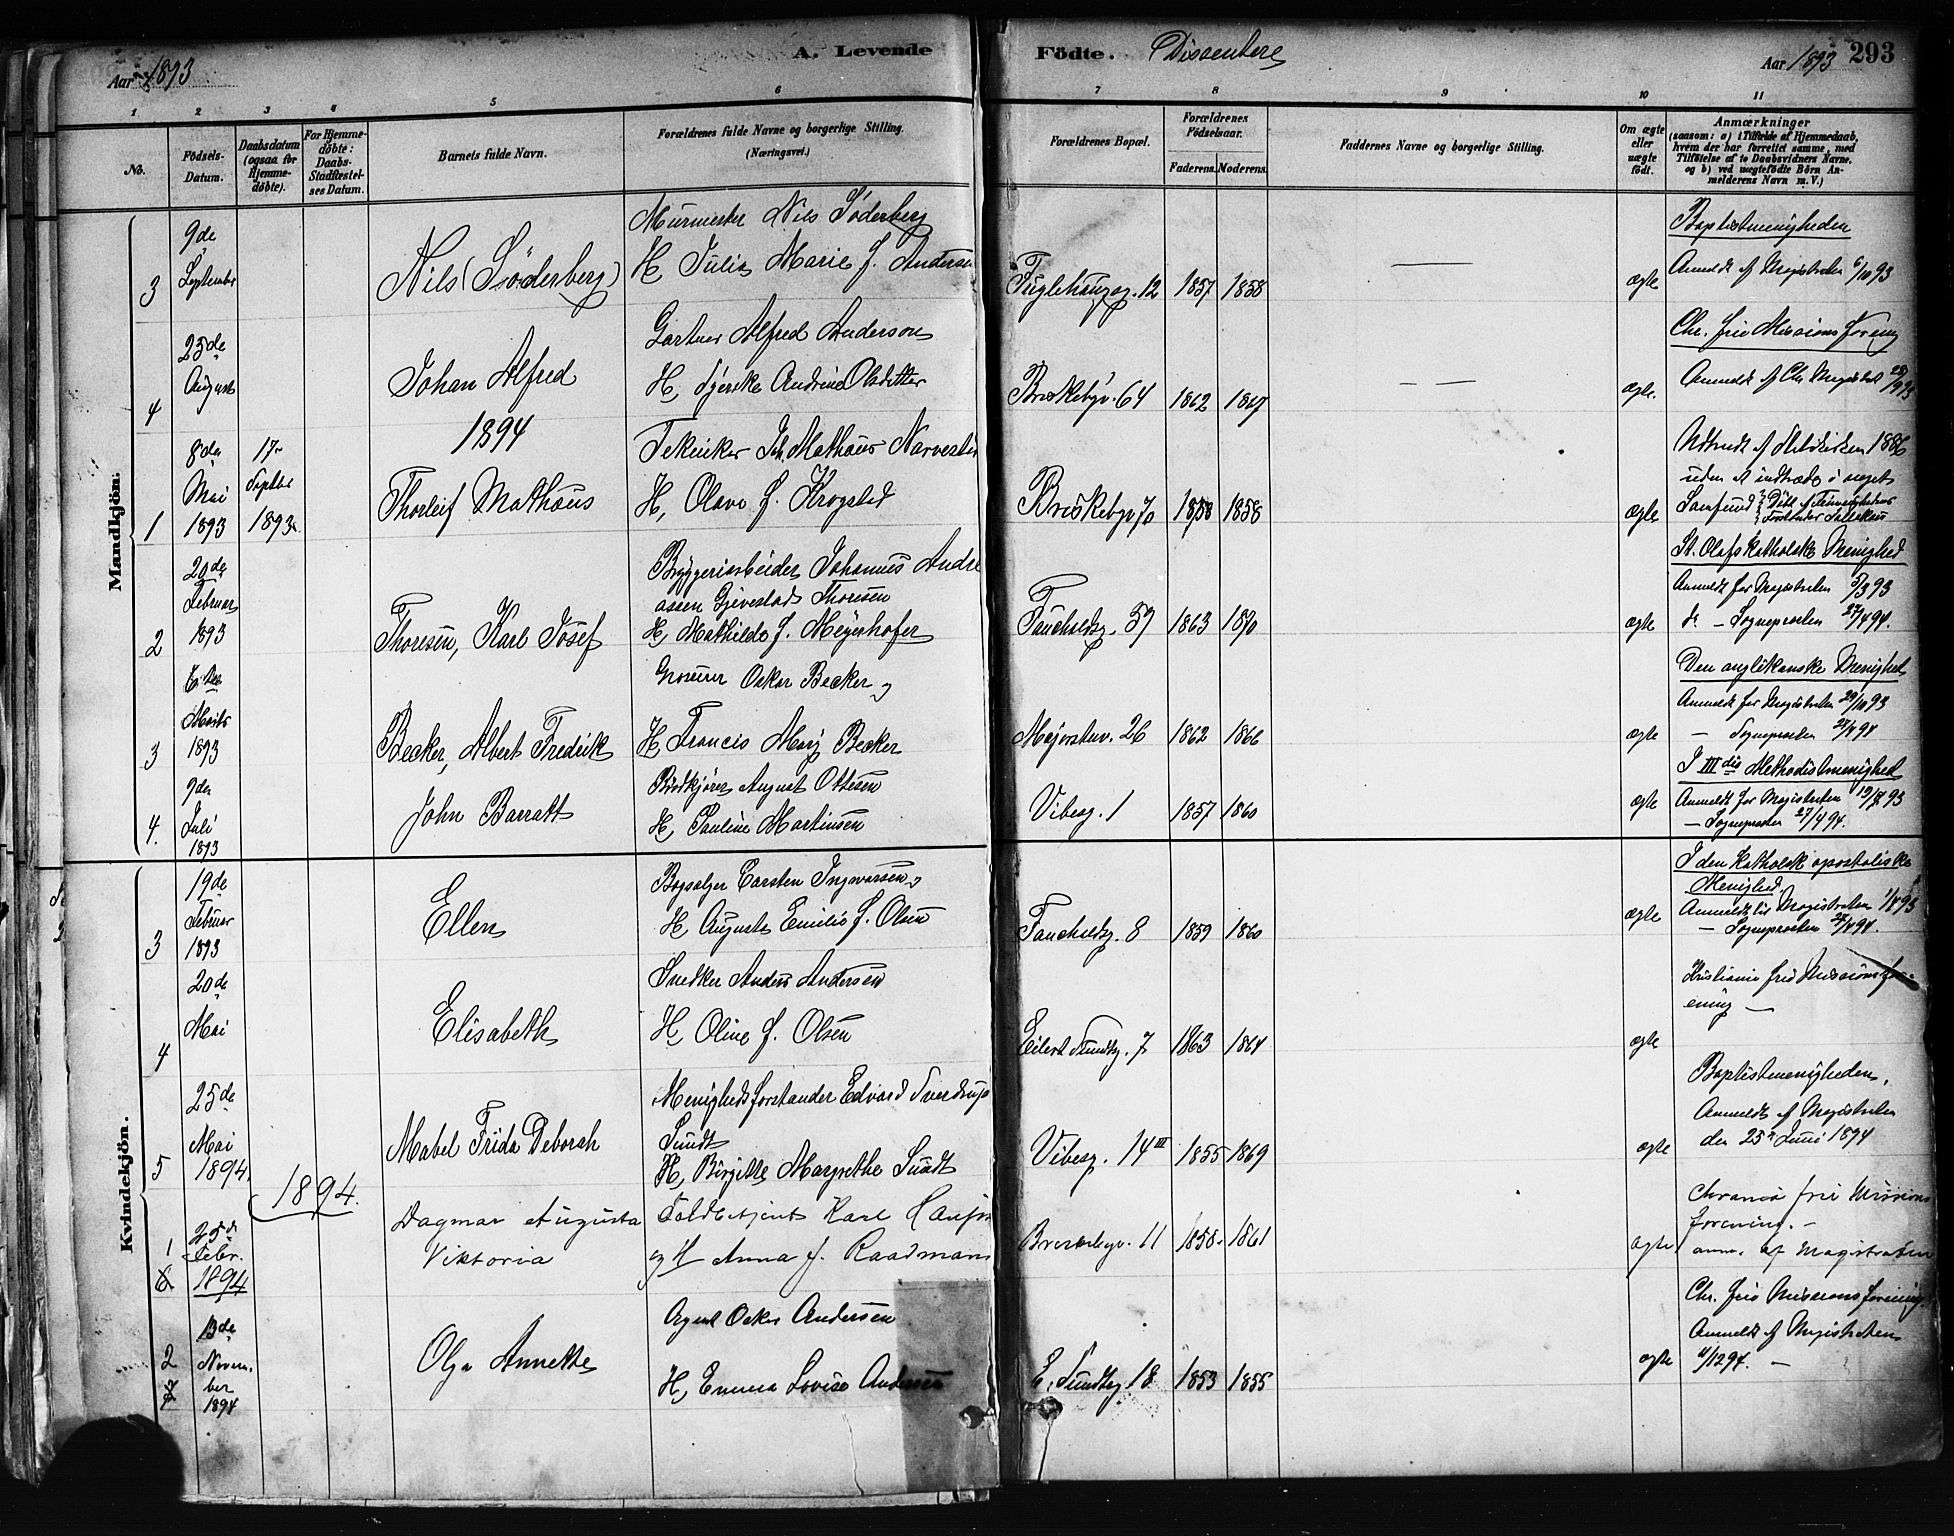 A. Levende Födte. Dissentere
Aar 1893
Aar 1893 293
1 2 3 4 5 6 7 8 9 10 11
No.
Födsels-Datum.
Daabsdatum (ogsaa for Hjemmedöbte).
For Hjemmedöbte: Daabs-Stadfæstelses Datum.
Barnets fulde Navn.
Forældrenes fulde Navne og borgerlige Stilling.
(Næringsvei.)
Forældrenes Bopæl.
Forældrenes Födselsaar.
Faderens. Moderens.
Faddernes Navne og borgerlige Stilling.
Om ægte eller uægte födt.
Anmærkninger
(saasom: a) i Tilfælde af Hjemmedaab,
hvem der har forrettet samme, med
Tilföielse af to Daabsvidners Navne,
og b) ved uægtefödte Börn An-
melderens Navn m. V.)
Mandkjön.
3 9de September
Nils (Söderberg)
Murmester Nils Söderberg
H Julia Marie f. Andersen
Fuglehaugg. 12 1857 1858 — ægte
Baptistmenigheden
Anmeldt af Magistraten 6/10 93
4 23de August
Johan Alfred
Gartner Alfred Anderson
H, Syerske Andrine Olsdatter
Briskebyv. 64 1862 1867 — — ægte.
Chr. frie Missions forening
Anmeldt af Chr. Magistrat 28/9 93
1894
1 8de Mai 1893 17 Septbr 1893
Thorleif Mathäus
Tekniker Joh. Mathäus Narvesen
H, Olava f. Krogstad
Briskebyv 70 1858 1858 ægte
Udtraadt af Statskirken 1886
uden at indtræde i noget
Samfund
2 20de Februar 1893
Thoresen, Karl Josef
Bryggeriarbeider Johannes Andre
assen Gjevestad Thoresen
H, Mathilde f. Meyerhofer
Fauchaldsg. 57 1863 1870 ægte
St. Olafs katholske Menighed
Anmeldt for Magistraten 5/3 93
do — Sogneprosten 27/4 94.
3 Marts 1893
Becker, Albert Fredrik
Grosserer Oskar Becker og
H, Francis Mary Becker
Majorstuv. 26 1862 1866 ægte
Den anglikanske Menighed
Anmeldt for Magistraten 29/10 93
— Sogneprosten 27/4 94
4. 9de Juli 1893
John Barratt
Brödkjörer August Ottesen
H, Pauline Martinsen
Vibesg. 1 1857 1860 ægte
I IIIdie Methodistmenighed
Anmeldt for Magistraten 19/7 93
— Sogneprosten 27/4 94.
Kvindekjön.
3 19de Februar 1893
Ellen
Bogsælger Carsten Ingwarsen og
H Augusta Emilie f. Olsen
Fauchaldsg. 8 1859 1860 ægte
I den katholsk apostoliske
Menighed.
Anmeldt til Magistraten 1/4 93
— Sogneprosten 27/4 94.
4 20de Mai
Elisabeth
Snedker Anders Andersen
H Oline f. Olsen
Eilert Sundtg. 7 1863 1864 ægte
Kristiania frie Missionsfor-
ening —
5 25de Mai 1894.
Mabel Frida Deborah
Menighedsforstander Edvard Sverdrup
Sundt
H, Birgitte Margrethe Sundt
Vibesg. 14 III 1855 1869 ægte
Baptistmenigheden,
Anmeldt af Magistraten
den 25de Juni 1894
1894.
1 6 25de Febr. 1894
Dagmar Augusta
Viktoria
Toldbetjent Karl Hansen
og H Anna f. Raadmann
Briskebyv. 11 1858. 1861 ægte
Chrania frie Missions
forening. —
anm. af Magistraten
2 7 13de November 1894
Olga Annette
Agent Oskar Andersen
H, Emma Lovise Andersen
E. Sundtsg 18 1853 1855 ægte
Chr. frie Missionsforening.
Anmeldt af Magistraten
11/12 94. —